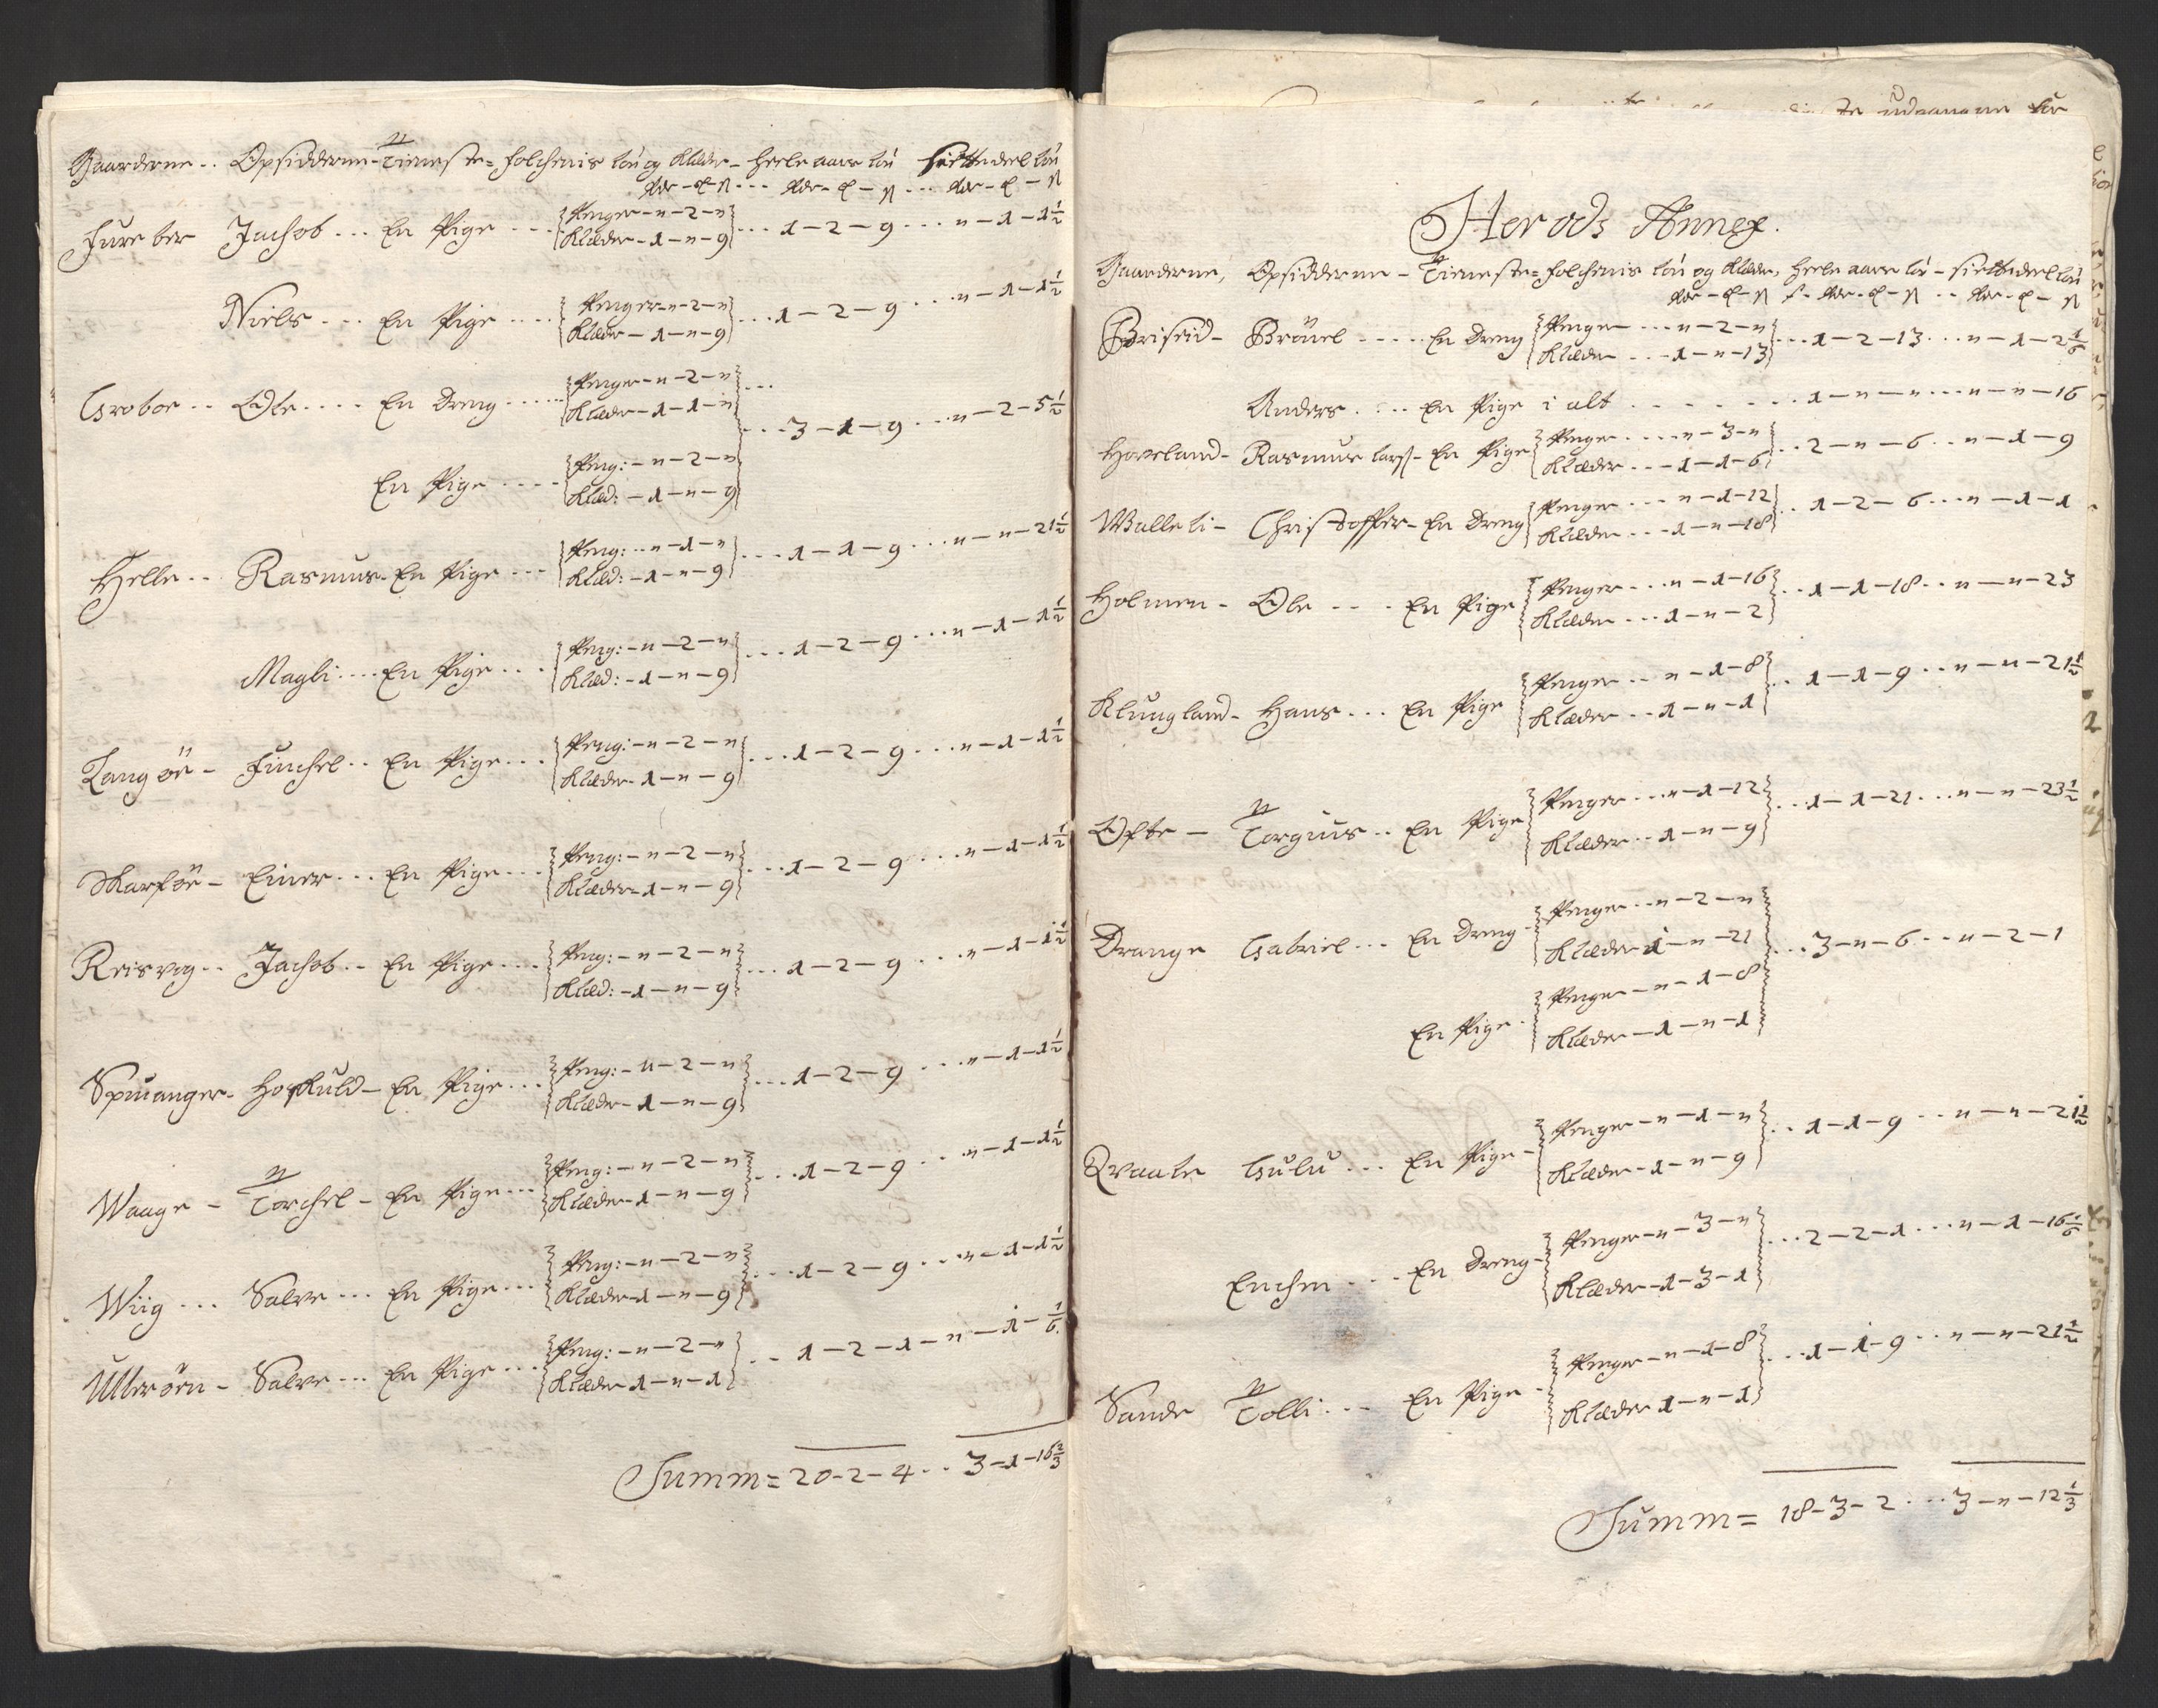 Gaarderne .. Opsidderne - Tieneste = folchenis lön og Klæder - heele aars lön siette deel lön
Rdr - ß ... Rdr - ß ... Rdr - ß
Furebær Jachob ... En Pige .... Penger - n - 2 - n ... 1 - 2 - 9 ... n - 1 - 1½
Klæder - 1 - n - 9
Niels ... En Pige .... Penger - n - 2 - n ... 1 - 2 - 9 ... n - 1 - 1½
Klæder - 1 - n - 9
Groboe .. Ole .... En Dreng ..... Penger - n - 2 - n ...
Klæder - 1 - 1 - n
... 3 - 1 - 9 ... n - 2 - 5½
En Pige .... Peng: - n - 2 - n
Klæd: - 1 - n - 9
Helle .. Rasmus - En Pige ... Peng: .. n - 1 - n ... 1 - 1 - 9 ... n - n - 21½
Klæd: - 1 - n - 9
Magli .... En Pige .... Peng: - n - 2 - n ... 1 - 2 - 9 ... n - 1 - 1½
Klæd: - 1 - n - 9
Langöe - Finchel .. En Pige ... Peng: - n - 2 - n ... 1 - 2 - 9 ... n - 1 - 1½
Klæder - 1 - n - 9
Skarföe - Einer ... En Pige ... Peng: - n - 2 - n ... 1 - 2 - 9 .... n - 1 - 1½
Klæder - 1 - n - 9
Reisvog .. Jachob .. En Pige .... Peng: - n - 2 - n ... 1 - 2 - 9 ... n - 1 - 1½
Klæd: - 1 - n - 9
Spinanger - Hoskuld - En Pige ... Peng: - n - 2 - n ... 1 - 2 - 9 ... n - 1 - 1½
Klæder - 1 - n - 9
Waage - Torchel - En Pige ... Peng: - n - 2 - n ... 1 - 2 - 9 ... n - 1 - 1½
Klæder - 1 - n - 9
Wiig ... Salve ... En Pige ... Peng: - n - 2 - n .... 1 - 2 - 9 ... n - 1 - 1½
Klæder - 1 - n - 9
Ulleröen - Salve ... En Pige ... Peng: - n - 2 - n .. 1 - 2 - 1 - n - 1 - 1/6
Klæder 1 - n - 1
Summ = 20 - 2 - 4 .. 3 - 1 - 16⅔
Herods Annex.
Gaarderne, Opsidderne - Tieneste = folchenis lön og Klæder, heele aars lön - siette deel lön
Rdr - ß - Rdr - ß .. Rdr - ß
Briseid - Brönel ..... En Dreng Penger ... n - 2 - n ... 1 - 2 - 13 ... n - 1 - 2 1/6
Klæder ... 1 - n - 13
Anders .... En Pige i alt ....... 1 - n - n ... n - n - 16
Hovland - Rasmus Larss - En Pige Penger .... n - 3 - n .. 2 - n - 6 .. n - 1 - 9
Klæder .. - 1 - 1 - 6
Walleli - Christoffer - En Dreng Penger ... n - 1 - 12 .. 1 - 2 - 6 ... n - 1 - 1
Klæder ... 1 - n - 18
Holmen - Ole ... En Pige Penger ... n - 1 - 16 .. 1 - 1 - 18 .. n - n - 23
Klæder ... 1 - n - 2
Klungland - Hans ... En Pige Penger .. n - 1 - 8 .. 1 - 1 - 9 .. n - n - 21½
Klæder .. 1 - n - 1
Ofte - Torgius .. En Pige Penger ... n - 1 - 12 ... 1 - 1 - 21 ... n - n - 23½
Klæder .. 1 - n - 9
Drange Gabriel ... En Dreng - Penger .. n - 2 - n
Klæder - 1 - n - 21 ... 3 - n - 6 ... n - 2 - 1
En Pige - Penger - n - 1 - 8
Klæder - 1 - n - 1
Qvaale Gulu ... En Pige - Penger - n - 1 - n .. 1 - 1 - 9 .. n - n - 21½
Klæder - 1 - n - 9
Enchen ... En Dreng - Penger - n - 3 - n ... 2 - 2 - 1 ... n - 1 - 16 1/6
Klæder - 1 - 3 - 1
Sande Tolli ... En Pige - Penger - n - 1 - 8 ... 1 - 1 - 9 .. n - n - 21½
Klæder 1 - n - 1
Summ = 18 - 3 - 2 .... 3 - n - 12⅓